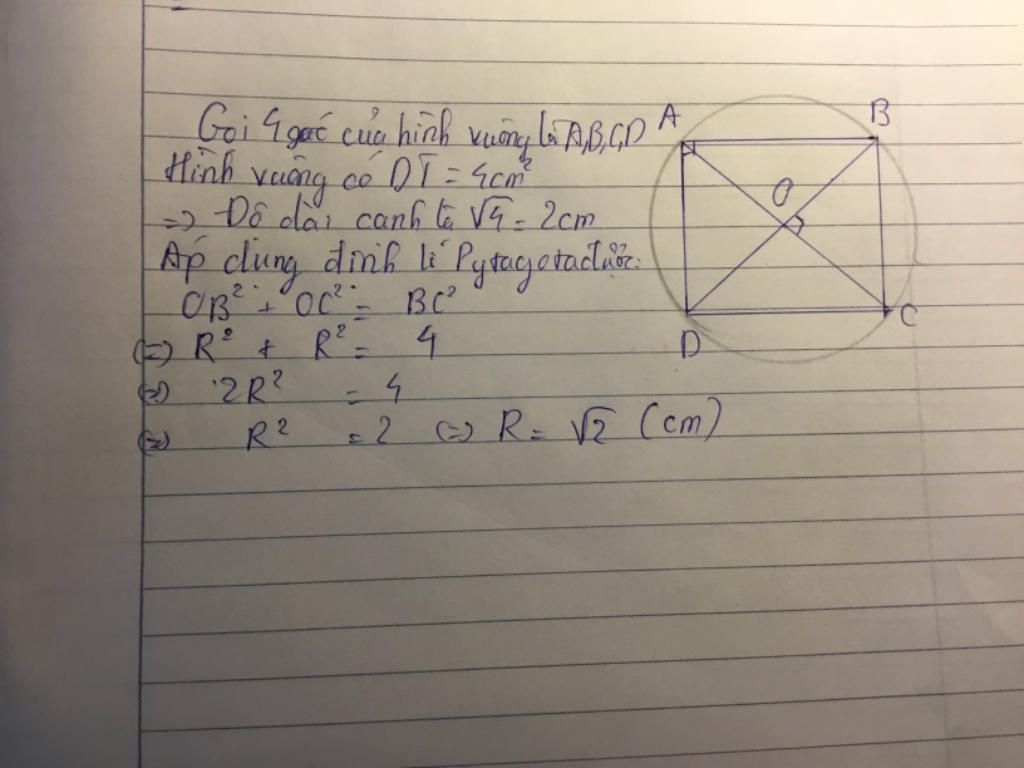 Gọi 4 góc của hình vuông là A,B,C,D
Hình vuông có DT = 4cm²
=> Độ dài cạnh là √4 = 2cm
Áp dụng định lí Pytagota được:
OB² + OC² = BC²
(=) R² + R² = 4
(=) 2R² = 4
(=) R² = 2 (=) R = √2 (cm)
A
B
O
D
C